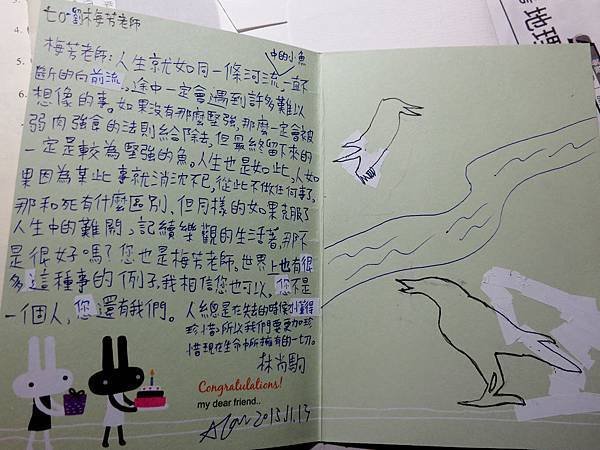 to 劉梅芳老師
中的小魚
梅芳老師：人生就如同一條河流，一直不
斷的向前流。途中一定會遇到許多難以
想像的事。如果沒有那麼堅強，那麼一定會被
弱肉強食的法則給除去，但最終留下來的
一定是較為堅強的魚。人生也是如此，人如
果因為某些事就消沈不已，從此不做任何事了。
那和死有什麼區別，但同樣的如果克服了
人生中的難關，記續樂觀的生活著，那不
是很好嗎？您也是梅芳老師。世界上也有很
多這種事的例子，我相信您也可以，您不是
一個人，您還有我們。
人總是在失去的時候才懂得
珍惜，所以我們要更加珍
惜現在生命中所擁有的一切。
林尚駒
Congratulations!
my dear friend..
2015.11.13
地理